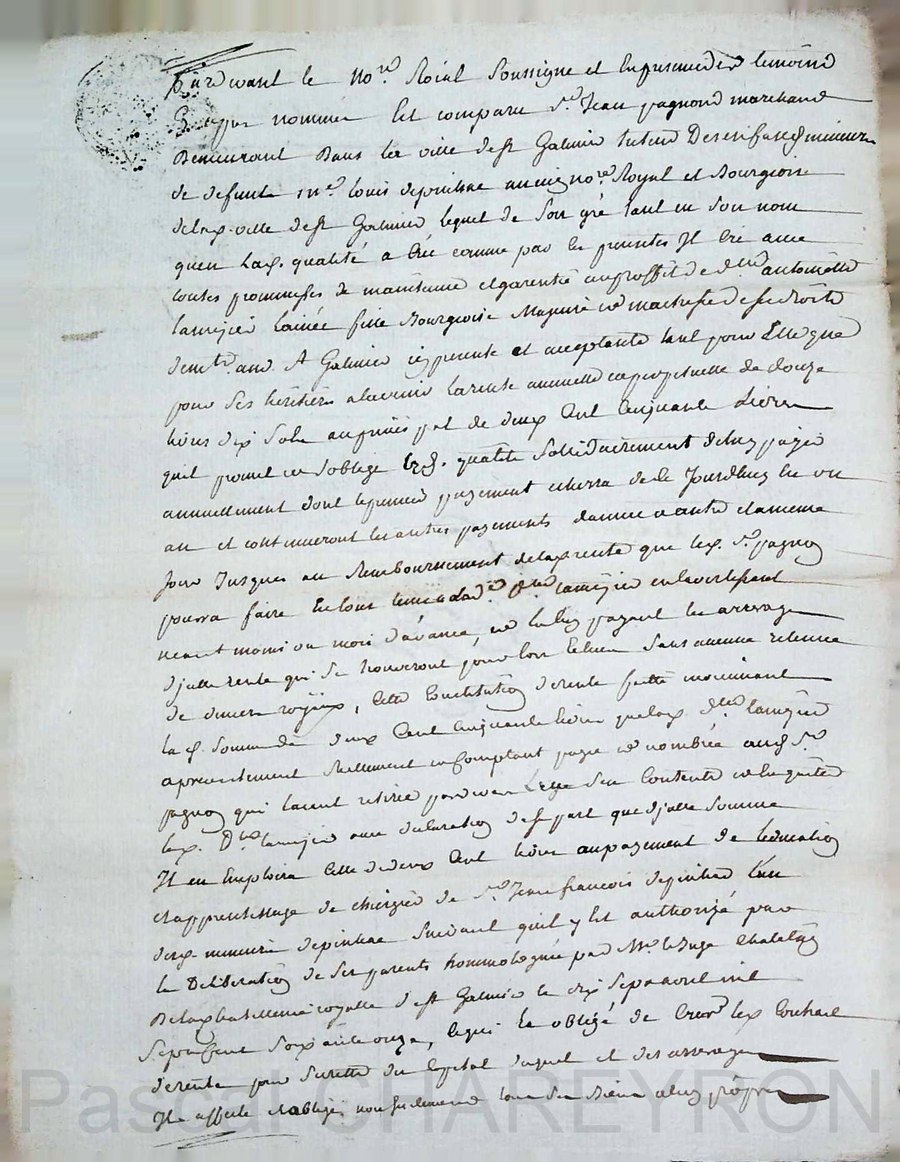 Pardevant le No.re Roial Soussigné et En presence des temoins
Est comparu S.r Jean pagnon marchand
Demeurant Dans la ville de S.t Galmier tuteur Des enfans mineurs
de defunt m.e Louis depinhac ancien no.re Royal et Bourgeois
de lad. ville de S.t Galmier, lequel de Son gré tant en Son nom
quen lad. qualité a Créé comme par les presentes Il Crée avec
toutes promesses de maintenue et garentie au proffit de d.lle antoinette
lamejeu lainée fille Bourgeoise Majeure et maitresse de ses droits
A Galmier icy presente et acceptante tant pour Elle que
pour Ses héritiers a lavenir la rente annuelle et perpetuelle de douze
livres dix Sols au principal de deux Cent Cinquante Livres
quil promet et Soblige qualité Solidairement de luy payer
annuellement dont le premier payement echerra de ce Jourdhuy en un
an et continueront les autres payements dannée a autre et a meme
Jour Jusques au Remboursement de lad. rente que led. S.r pagnon
pourra faire En tout tems a lad. d.lle lamejeu en lavertissant
neant moins un mois d'avance, et En luy payant les arrerages
d'icelle rente qui Se trouveront pour lors Echus Sans aucune retenue
de deniers royaux, Cette Constitution de rente faitte moyennant
la d. Somme de deux Cent Cinquante livres que lad. d.lle lamejeu
a presentement Reellement et Comptant payée et nombrée aud. S.r
pagnon qui layant retirée pardevers Luy Sen Contente et En quitte
lad. D.lle lamejeu avec declaration de Sa part que d'icelle Somme
Il en Emploira Celle de deux Cent livres au payement de leducation
et apprentissage de chirurgie de S.r Jean francois depinhac l'un
desd. mineurs depinhac Suivant quil y Est authorizé par
la Deliberation de Ses parents hommologuée par M.r le Juge Chatelain
De la Chatellenie royalle de S.t Galmier le dix Sept avril mil
Sept Cent Soixante onze, lequel la obligé de Créer led. Contrat
de rente pour Sureté du Capital duquel et des arrerages
Il a affecté et obligé non Seulement tous Ses Biens et luy propres
Pascal CHAREYRON